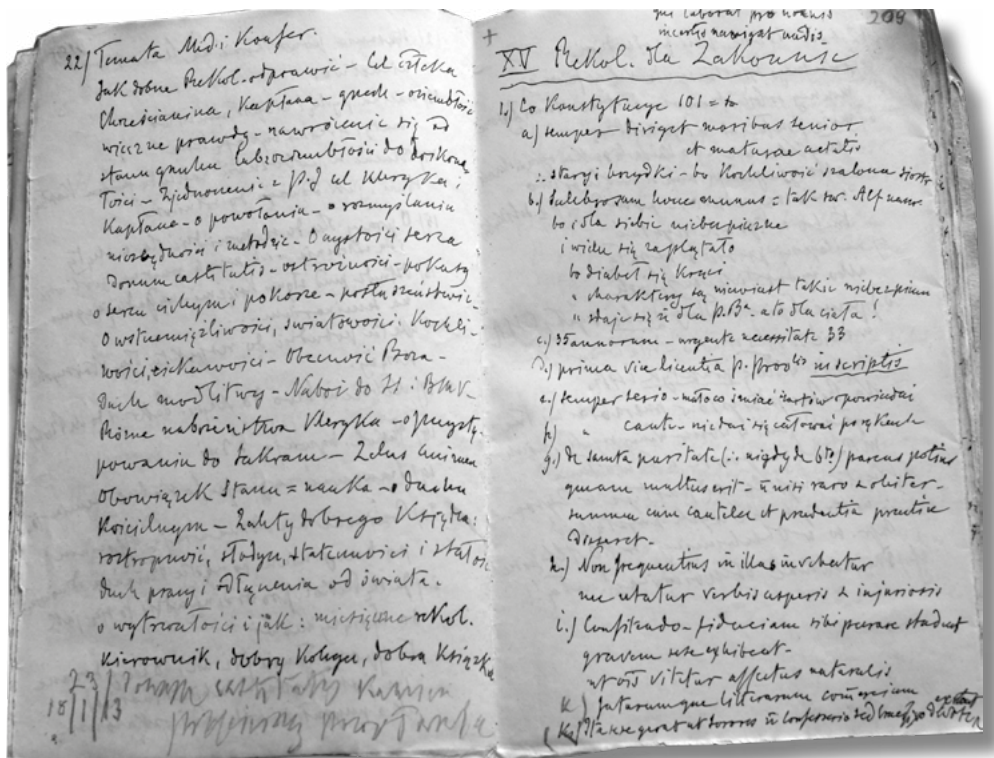 22) Temata Med. i Konfer.
Jak dobrze Rekol. odprawić – Cel człeka
Chrześcianina, Kapłana – grzech – oziembłość
wieczne prawdy – nawrócenie się od
stanu grzechu lub oziembłości do doskona
łości – Zjednoczenie z P.J cel Kleryka i
Kapłana – o powołaniu – o rozmyślaniu
niezbędności i metodzie – O czystości serca
Donum castitatis – ostrożności – pokusy
o sercu cichym i pokorze – posłuszeństwie –
O wstrzemięźliwości, światowości. Kochli-
wości, ciekawości – Obecność Boża –
duch modlitwy – Naboż do SS i BMV –
Różne nabożeństwa Kleryka – o przystę-
powaniu do Sakram – Zelus animar
Obowiązek Stanu = nauka – o duchu
Kościelnym – Zalety dobrego Księdza:
roztropność, słodycz, stateczności i stałość
duch pracy i odłączenia od świata.
o wytrwałości i jak: miesięczne rekol.
Kierownik, dobry Kolega, dobra Książka
23)
18/1/13
qui laborat pro nonnis
incertis navigat undis
209
+
XV Rekol. dla Zakonnic
1.) Co Konstytucye 101 = to
a) semper diriget moribus senior
et maturae aetatis
∴ starzy i brzydki – bo Kochliwość szalona siostr
b.) Salebrosum hocce munus = tak św. Alf nazw.
bo i dla siebie niebezpieczne
i wielu się zaplątało
bo diabeł się kręci
" charaktery są niewiast takie niebezpieczn
" zdaje się że dla P.Ba. a to dla ciała!
c.) 35 annorum – urgente necessitate 33
d.) prima via licentia P. Provlis in scriptis
e.) semper serio – mało co śmiać żartów opowiadać
f.) " caute – nie dać się całować po rękach
g.) de sancta puritate (∴ nigdy de 6to) parcus potius
quam multus erit – ū nisi raro & obiter –
summa cum cautela et prudentia practice
disseret –
h.) Non frequentius in illas invehatur
nec utatur verbis asperis & injuriosis
i.) Confitendo – fiduciam sibi parare studeat
gravem sese exhibeat –
ut ois vitetur affectus naturalis
k.) futurumque litterarum comercium